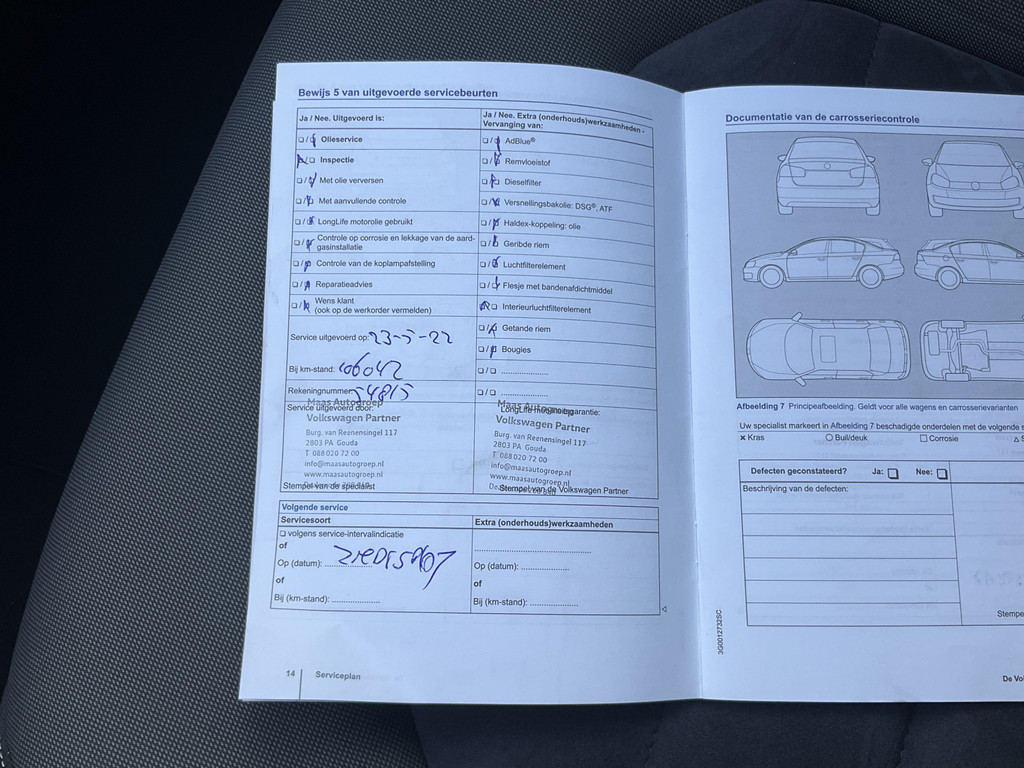 Bewijs 5 van uitgevoerde servicebeurten
Ja / Nee. Uitgevoerd is:
Olieservice
Inspectie
Met olie verversen
Met aanvullende controle
LongLife motorolie gebruikt
Controle op corrosie en lekkage van de aard-
gasinstallatie
Controle van de koplampafstelling
Reparatieadvies
Wens klant
(ook op de werkorder vermelden)
Service uitgevoerd op: 23-5-22
Bij km-stand: 106042
Rekeningnummer: 54815
Service uitgevoerd door:
Maas Autogroep
Volkswagen Partner
Burg. van Reenensingel 117
2803 PA Gouda
T 088 020 72 00
info@maasautogroep.nl
www.maasautogroep.nl
Stempel van de specialist
Ja / Nee. Extra (onderhouds)werkzaamheden -
Vervanging van:
AdBlue®
Remvloeistof
Dieselfilter
Versnellingsbakolie: DSG®, ATF
Haldex-koppeling: olie
Geribde riem
Luchtfilterelement
Flesje met bandenafdichtmiddel
Interieurluchtfilterelement
Getande riem
Bougies
Maas Autogroep
Volkswagen Partner
Burg. van Reenensingel 117
2803 PA Gouda
T 088 020 72 00
info@maasautogroep.nl
www.maasautogroep.nl
Stempel van de Volkswagen Partner
Volgende service
Servicesoort
volgens service-intervalindicatie
of
Op (datum):
of
Bij (km-stand):
Extra (onderhouds)werkzaamheden
Op (datum):
of
Bij (km-stand):
14 Serviceplan
Documentatie van de carrosseriecontrole
Afbeelding 7 Principeafbeelding. Geldt voor alle wagens en carrosserievarianten
Uw specialist markeert in Afbeelding 7 beschadigde onderdelen met de volgende
Kras Buil/deuk Corrosie
Defecten geconstateerd? Ja: Nee:
Beschrijving van de defecten:
Stempe
3G0012732SC
De Vo